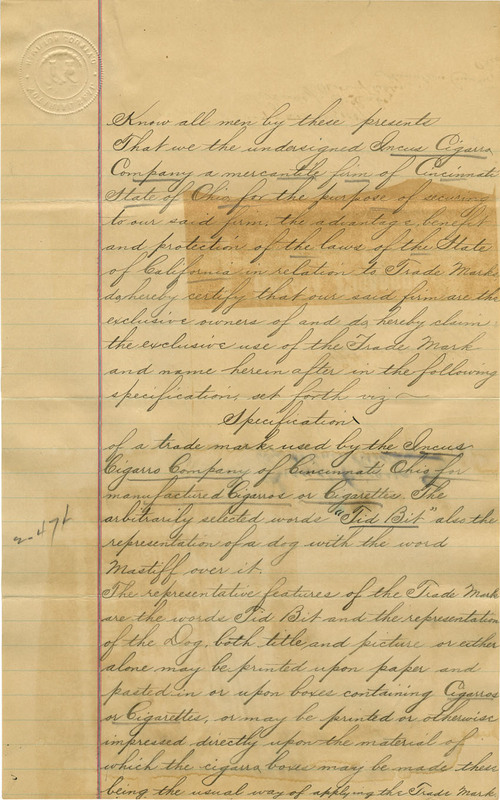 Know all men by these presents
That we the undersigned Incus Cigarro
Company a mercantile firm of Cincinnati
State of Ohio for the purpose of securing
to our said firm, the advantage, benefit
and protection of the laws of the State
of California in relation to Trade Marks
do hereby certify that our said firm are the
exclusive owners of and do hereby claim
the exclusive use of the Trade Mark
and name herein after in the following
specifications, set forth viz
Specification
of a trade mark used by the Incus
Cigarro Company of Cincinnati Ohio for
manufactured Cigerros or Cigarettes The
arbitrarily selected words "Tid Bit" also the
representation of a dog with the word
Mastiff over it.
The representative features of the Trade Mark
are the words Tid Bit and the representation
of the Dog, both title, and picture or either
alone may be printed upon paper and
pasted in or upon boxes containing Cigarros
or Cigarettes, or may be printed or otherwise
impressed directly upon the material of
which the cigarro boxes may be made these
being the usual way of applying the Trade Mark